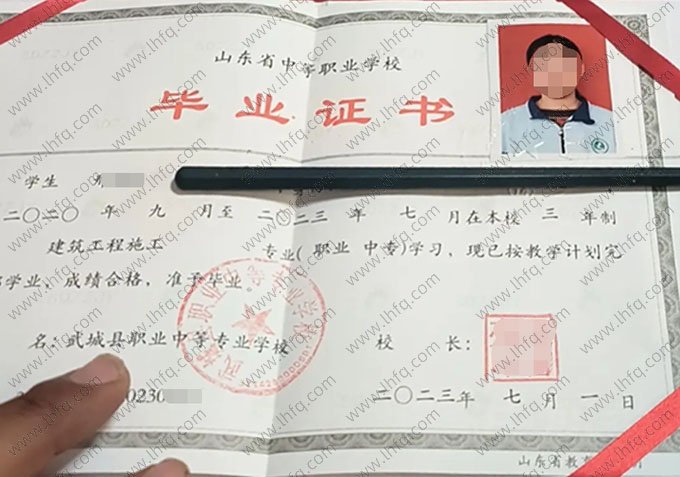 山东省中等职业学校
毕业证书
学生
二〇二〇 年 九 月至 二〇二三 年 七 月在本校 三 年制
建筑工程施工 专业( 职业 中专)学习,现已按教学计划完
学业,成绩合格,准予毕业。
名:武城县职业中等专业学校 校 长:
0230
二〇二三年 七 月 一 日
山东省教育
www.lhfq.com